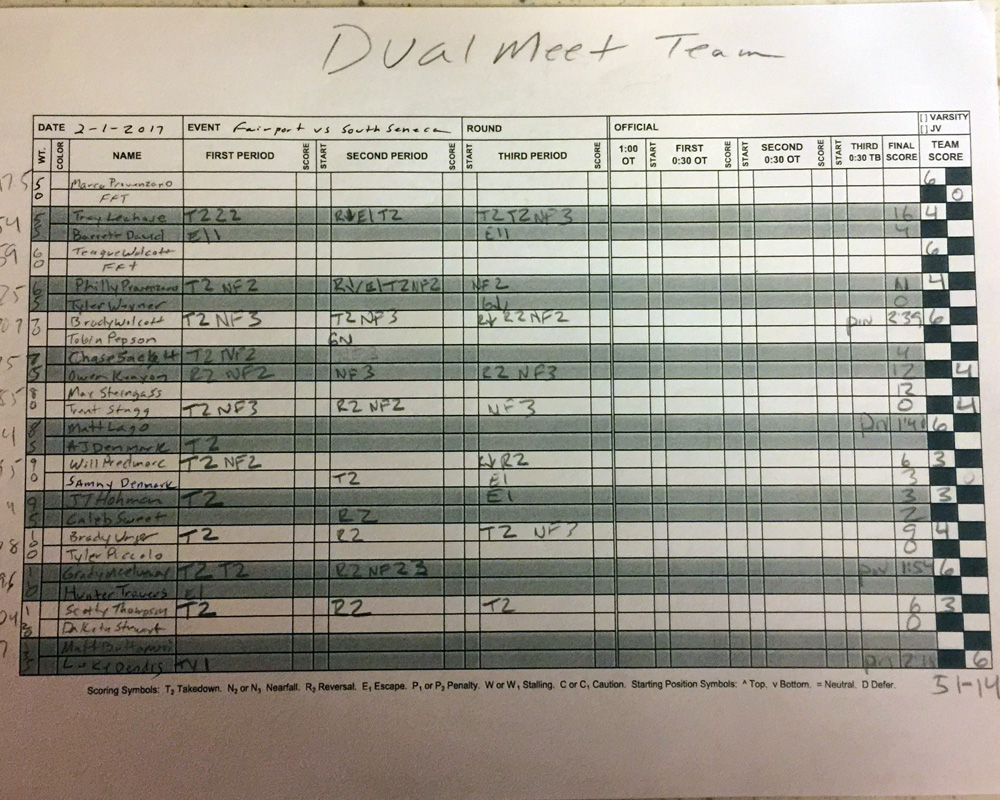 Dual Meet Team
[ ] VARSITY
[ ] JV
DATE 2-1-2017 EVENT Fairport vs South Seneca ROUND OFFICIAL
WT. COLOR NAME FIRST PERIOD SCORE START SECOND PERIOD SCORE START THIRD PERIOD SCORE 1:00 OT START FIRST 0:30 OT SCORE START SECOND 0:30 OT SCORE START THIRD 0:30 TB FINAL SCORE TEAM SCORE
5 Marco Provenzano 6
0 FFT 0
5 Troy Leahase T222 T2T2NF3 16 4
5 Barrett David E11 E11 4
6 Teague Wolcott 6
0 FFT
6 Philly Provenzano T2 NF2 NF2 4
5 Tyler Wayner 0
7 Brady Wolcott T2 NF3 T2 NF3 R2 NF2 pin 2:39 6
0 Tobin Pepson
7 Chase T2 NF2 4
5 Owen Kenyon R2 NF2 NF3 R2 NF3 12 4
8 Max Steingass 12
0 Trent Stagg T2 NF3 R2 NF2 NF3 0 4
8 Matt Lago pin 6
5 AJ Denmark T2
9 Will T2 NF2 R2 6 3
0 Sammy Denmark T2 E1 3
9 JT Hohman T2 E1 3 3
5 Caleb Sweet R2 2
Brady Unger T2 R2 T2 NF3 9 4
Tyler Piccolo 0
Grady T2 T2 R2 NF2 3 pin 1:54 6
Hunter Travers E1
Scotty Thompson T2 R2 T2 6 3
Dakota Stewart 0
Matt
Luke pin 6
Scoring Symbols: T₂ Takedown. N₂ or N₃ Nearfall. R₂ Reversal. E₁ Escape. P₁ or P₂ Penalty. W or W₁ Stalling. C or C₁ Caution. Starting Position Symbols: ^ Top. v Bottom. = Neutral. D Defer.
51-14